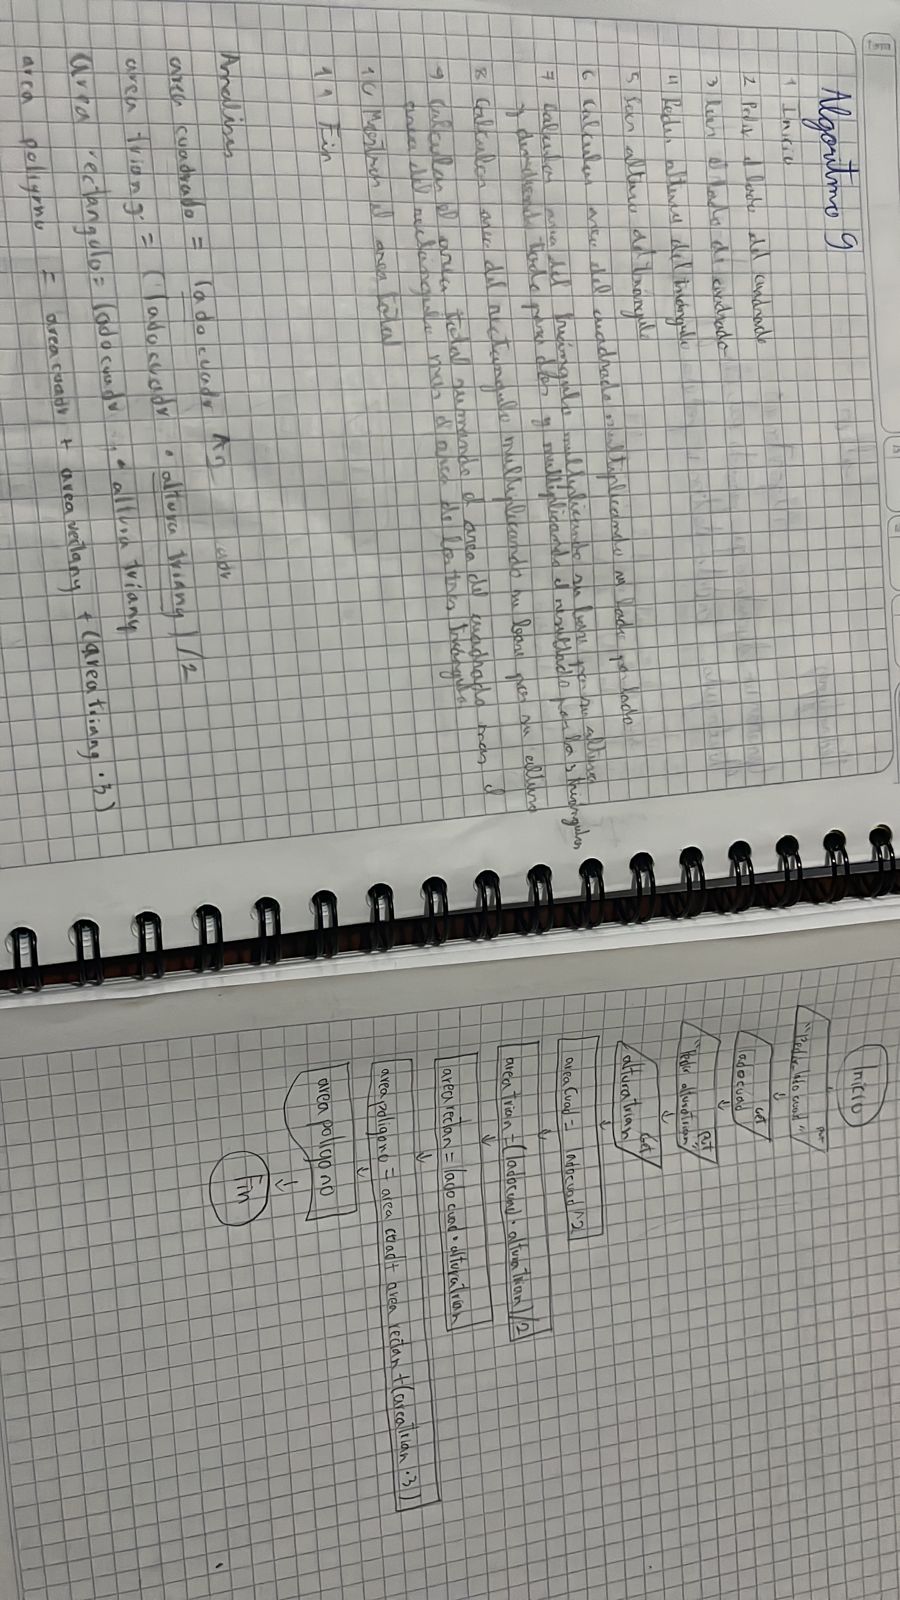 Algoritmo 9
1 Inicio
2 Pedir el lado del cuadrado
3 leer el lado del cuadrado
4 Pedir altura del triángulo
5 leer altura del triángulo
6 Calcular area del cuadrado multiplicando su lado por lado
7 calcular area del triángulo multiplicando su base por su altura
y dividiendo todo para dos y multiplicando el resultado por los 3 triangulos
8 Calcular area del rectangulo multiplicando su base por su altura
9 Calcular el area total sumando el area del cuadrado mas el
area del rectangulo mas el area de los tres triangulo
10 Mostrar el area total
11 Fin
Analisis
area cuadrado = lado cuadr ^2
adr
area triang = (lado cuadr · altura triang) /2
area rectangulo = lado cuadr · altura triang
area poligono = area cuadr + area rectang + (area triang · 3)
Inicio
"Pedir lado cuad" put
lado cuad Get
"Pedir alturatrian" put
alturatrian Get
area cuad = lado cuad ^2
area trian = (lado cuad · alturatrian) /2
area rectan = lado cuad · alturatrian
area poligono = area cuad + area rectan + (area trian · 3)
area poligono
Fin